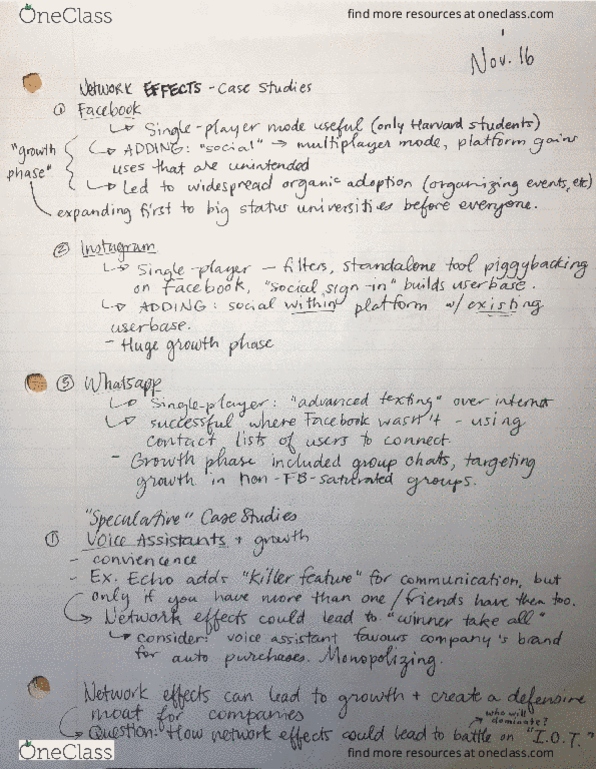 OneClass
find more resources at oneclass.com
Nov. 16
NETWORK EFFECTS - Case Studies
① Facebook
↳ Single-player mode useful (only Harvard students)
"growth phase"
↳ ADDING: "social" → multiplayer mode, platform gains
uses that are unintended
↳ Led to widespread organic adoption (organizing events, etc)
expanding first to big status universities before everyone.
② Instagram
↳ Single-player — filters, standalone tool piggybacking
on Facebook, "social sign-in" builds userbase.
↳ ADDING: social within platform w/ existing
userbase.
- Huge growth phase
③ Whatsapp
↳ Single-player: "advanced texting" over internet
↳ successful where Facebook wasn't - using
contact lists of users to connect.
- Growth phase included group chats, targeting
growth in non-FB-saturated groups.
"Speculative" Case Studies
① Voice Assistants + growth
- convience
- Ex. Echo adds "killer feature" for communication, but
only if you have more than one / friends have them too.
↳ Network effects could lead to "winner take all"
↳ consider: voice assistant favours company's brand
for auto purchases. Monopolizing.
Network effects can lead to growth + create a defensive
moat for companies
who will dominate?
↳ Question: How network effects could lead to battle on "I.O.T."
OneClass
find more resources at oneclass.com